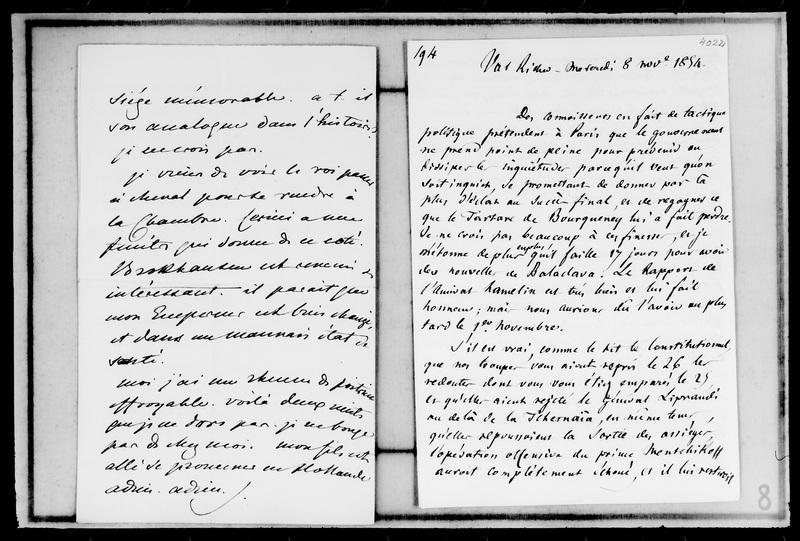 siège mémorable. a-t-il
son analogue dans l'histoire,
je ne crois pas.
je viens de voir le roi passer
à cheval pour se rendre à
la Chambre. Ceci a une
fenêtre qui donne de ce côté.
Brockhausen est
intéressant. il paraît que
mon Empereur est bien changé,
et dans un mauvais état de
santé.
moi j'ai un rhume de poitrine
effroyable. voilà deux nuits
que je ne dors pas. je ne bouge
pas de chez moi. mon fils est
allé se promener en Hollande
adieu. adieu.
194
4022
Val Richer - mercredi 8 nov.e 1854
Des connaisseurs en fait de tactique
politique prétendent à Paris que le gouvernement
ne prend point de peine pour prévenir ou
dissiper les inquiétudes parcequ'il veut qu'on
soit inquiet, se promettant de donner par là
plus d'éclat au succès final, et de regagner ce
que le Tartare de Bourqueney lui a fait perdre.
Je ne crois pas beaucoup à ces finesses, et je
m'étonne de plus en plus qu'il faille 17 jours pour avoir
des nouvelles de Balaclava. Le Rapport de
l'Amiral Hamelin est très bien et lui fait
honneur; mais nous aurions dû l'avoir au plus
tard le 1er novembre.
S'il est vrai, comme le dit le Constitutionnel,
que nos troupes vous aient repris le 26 les
redoutes dont vous vous étiez emparés le 25
et qu'elles aient rejeté le général Liprandi
au delà de la Tchernaïa, en même tems
qu'elles repoussaient la sortie des assiégés,
l'opération offensive du prince Mentchikoff
aurait complètement échoué, et il lui resterait
8